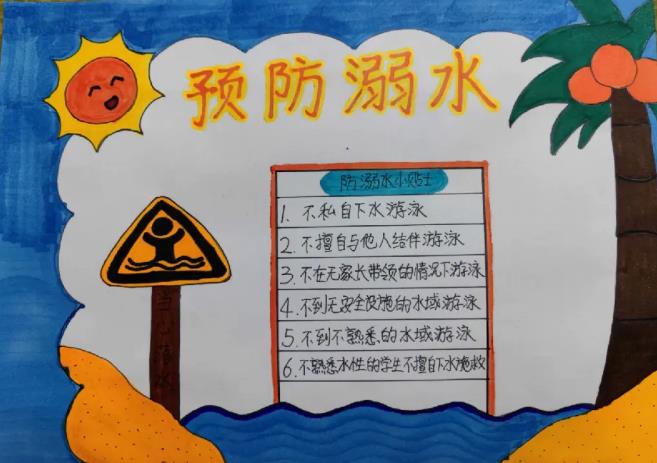 预防溺水
防溺水小贴士
1. 不私自下水游泳
2. 不擅自与他人结伴游泳
3. 不在无家长带领的情况下游泳
4. 不到无安全设施的水域游泳
5. 不到不熟悉的水域游泳
6. 不熟悉水性的学生不擅自下水施救
当心落水